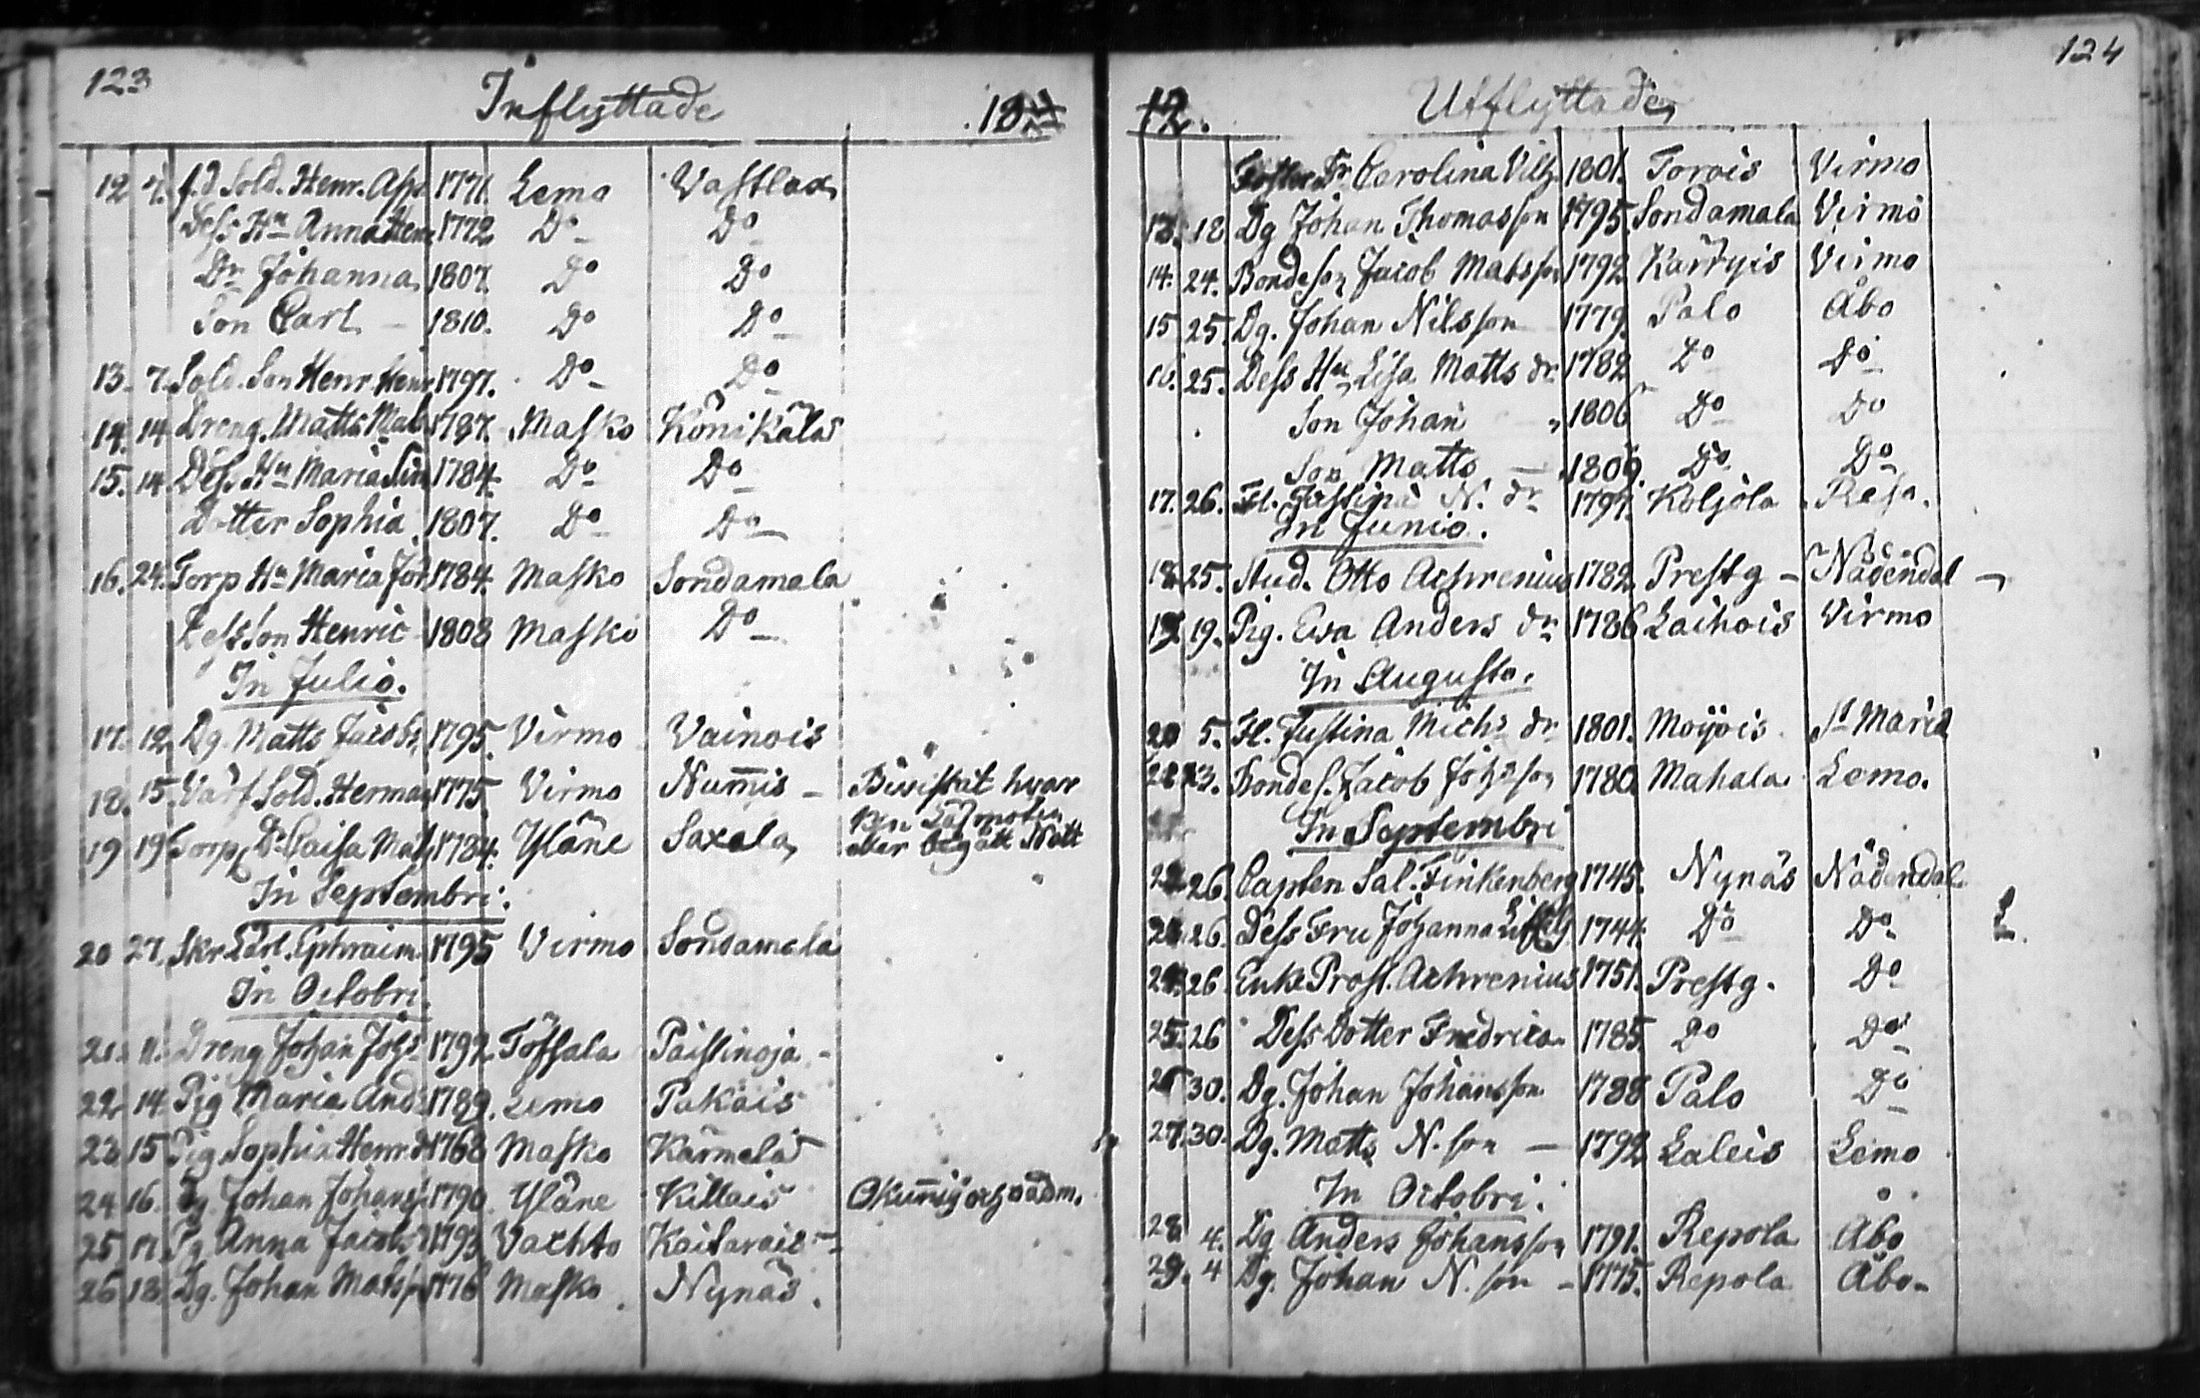 123
Inflyttade
18
12 7. f.d Sold. Henr. 1771. Lemo Vastlax
Dess Hu Anna Henr 1772 Do Do
Dr Johanna 1807. Do Do
Son Carl – 1810. Do Do
13. 7. Sold. Son Henr Henr 1797. Do Do
14. 14 Dreng. Matts Mats 1787. Masko Königkälas
15. 14. Dess Hu Maria 1784. Do Do
Dotter Sophia 1807. Do Do
16. 24. Torp Hu Maria Joh 1784. Masko Sondamala
Dess Son Henric 1808 Masko Do
In Julio.
17. 12. Dg. Matts Jacobs 1795. Virmo Vainois
18. 15. Värf. Sold. Herman 1775. Virmo Num̄is – Bivistat hvar
ken Läsmöten
19 19 Torp. Dr Caisa Mats 1784. Yläne Saxala eller begått Natt
In Septembri.
20 27. Skr Lärl. Ephraim 1795 Virmo Sondamala
In Octobri.
21. 11. Dreng Johan Johs 1792. Töfsala Paistinoja –
22 14 Pig Maria And 1789. Lemo Pakais
23 15 Pig Sophia Henr d 1768 Masko Karmela
24 16. Dg. Johan Johans 1790 Yläne Killais Okun̄ig och oadm.
25 17. Pg Anna Jacobs d 1793 Vachto Kaitarais –
26 18. Dg. Johan Matss 1776 Masko. Nynäs.
124
12.
Utflyttade
Foster Dr Carolina Vilh. 1801. Torois Virmo
13. 18 Dg Johan Thomasson 1795. Sondamala Virmo
14. 24. Bondeson Jacob Matsson 1792 Karryis Virmo
15 25. Dg. Johan Nilsson 1779. Palo Åbo
16. 25. Dess Hu Lisa Matts dr 1782 Do Do
Son Johan 1806 Do Do
Son Matts – 1809. Do Do
17. 26. Fl. Justina N. dr 1797. Koljola Reso.
In Junio.
18 25. Stud. Otto Achrenius 1782 Prestg – Nådendal –
19 19. Pig. Ewa Anders dr 1786 Laihois Virmo
In Augusto.
20 5. Fl. Justina Michs dr 1801. Moijois St Maria
21 13. Bondes. Jacob Johsson 1780. Mahala Lemo.
In Septembri
22 26. Capten Sal. Finkenberg 1745. Nynäs Nådendal
26. Dess Fru Johanna 1744. Do Do
26. Enke Prost. Achrenius 1751. Prestg. Do
25. 26 Dess Dotter Fredrica 1785. Do Do
26 30. Dg. Johan Johansson 1788 Palo Do
27. 30. Dg. Matts N. son – 1792 Laleis Lemo
In Octobri.
28 4. Dg Anders Johansson 1791. Repola Åbo
29. 4 Dg. Johan N. son – 1775. Repola Åbo.